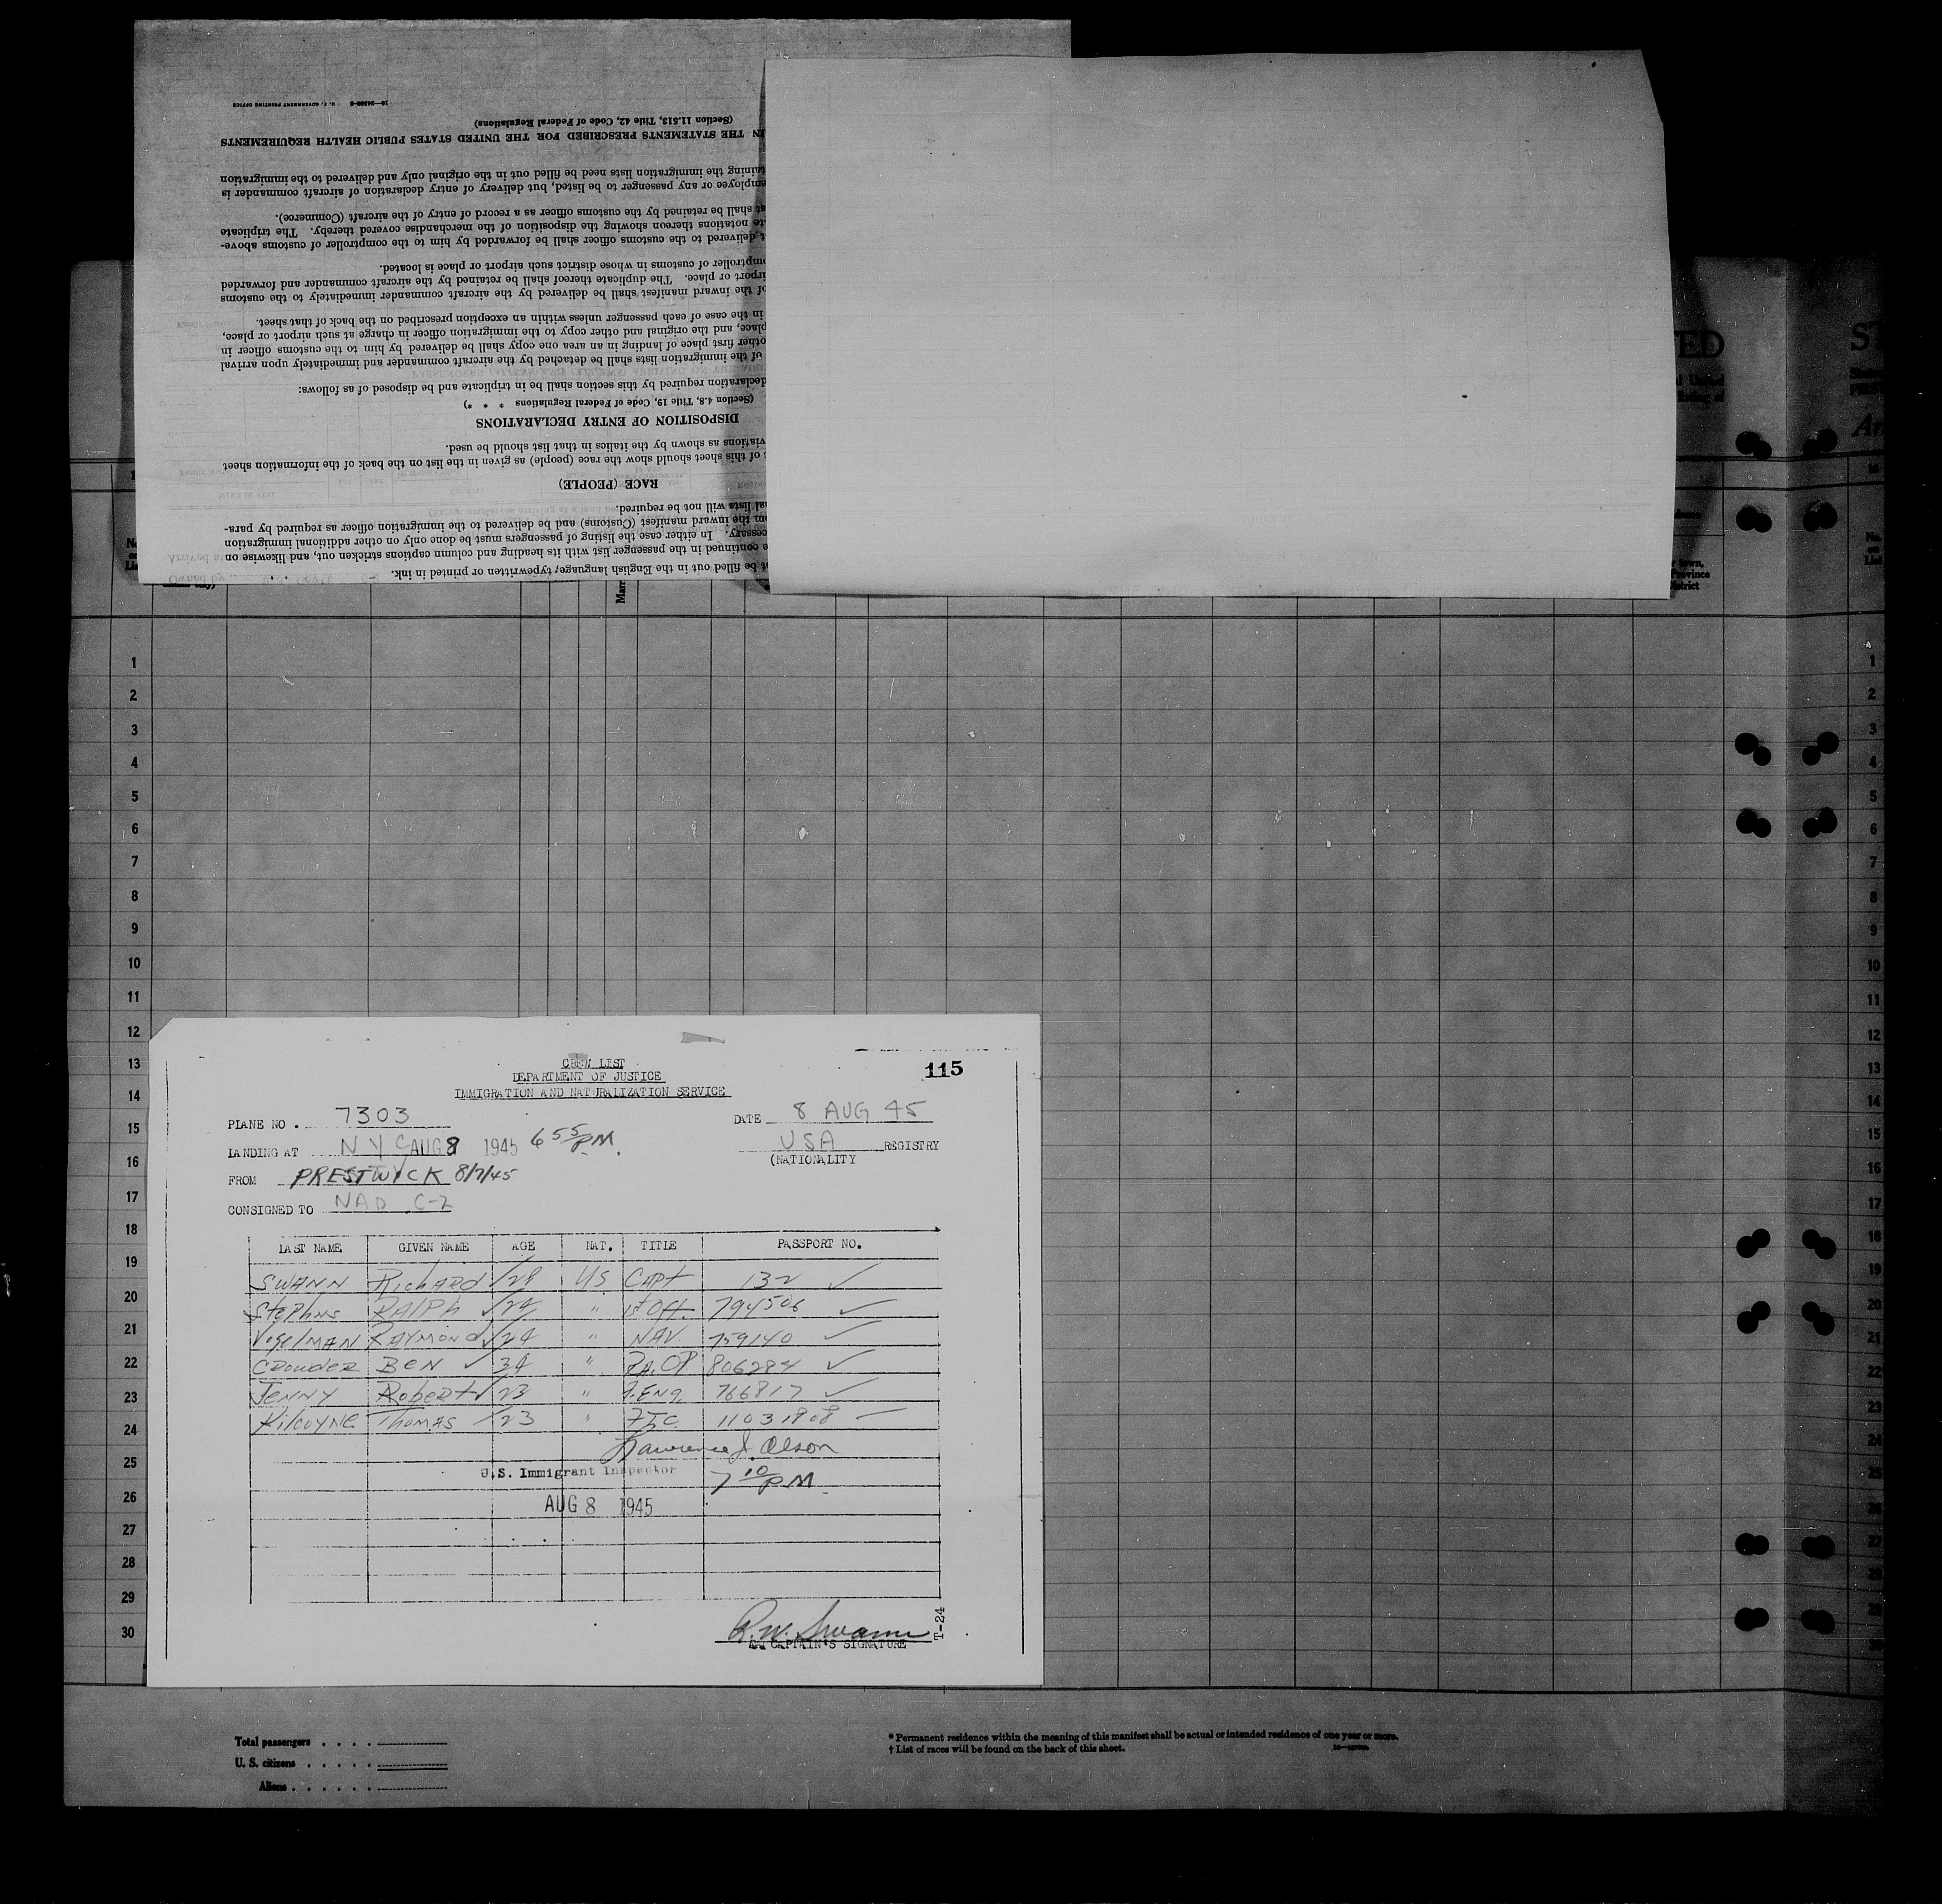 16—24566-2 U. S. GOVERNMENT PRINTING OFFICE
(Section 11.513, Title 42, Code of Federal Regulations)
IN THE STATEMENTS PRESCRIBED FOR THE UNITED STATES PUBLIC HEALTH REQUIREMENTS
taining the immigration lists need be filled out in the original only and delivered to the immigration
employee or any passenger to be listed, but delivery of entry declaration of aircraft commander is
shall be retained by the customs officer as a record of entry of the aircraft (Commerce).
notations thereon showing the disposition of the merchandise covered thereby. The triplicate
delivered to the customs officer shall be forwarded by him to the comptroller of customs above-
comptroller of customs in whose district such airport or place is located.
airport or place. The duplicate thereof shall be retained by the aircraft commander and forwarded
of the inward manifest shall be delivered by the aircraft commander immediately to the customs
in the case of each passenger unless within an exception prescribed on the back of that sheet.
place, and the original and other copy to the immigration officer in charge at such airport or place,
other first place of landing in an area one copy shall be delivered by him to the customs officer in
of the immigration lists shall be detached by the aircraft commander and immediately upon arrival
declaration required by this section shall be in triplicate and be disposed of as follows:
(Section 4.8, Title 19, Code of Federal Regulations * * *)
DISPOSITION OF ENTRY DECLARATIONS
viations as shown by the italics in that list should be used.
of this sheet should show the race (people) as given in the list on the back of the information sheet
RACE (PEOPLE)
lists will not be required.
the inward manifest (Customs) and be delivered to the immigration officer as required by para-
cessary. In either case the listing of passengers must be done only on other additional immigration
continued in the passenger list with its heading and column captions stricken out, and likewise on
be filled out in the English language; typewritten or printed in ink.
CREW LIST
115
DEPARTMENT OF JUSTICE
IMMIGRATION AND NATURALIZATION SERVICE
PLANE NO. 7303 DATE 8 AUG 45
LANDING AT N Y C AUG 8 1945 6 55 PM USA REGISTRY
(NATIONALITY
FROM PRESTWICK 8/7/45
CONSIGNED TO NAD C-2
LAST NAME GIVEN NAME AGE NAT. TITLE PASSPORT NO.
SWANN RICHARD 29 US CAPT 132
Stephns RALPH 24 " 1st Off. 794506
VogelMAN RAYMOND 24 " NAV. 759140
CROWDER BEN 34 " RA.OP 806284
JENNY RobERT 23 " F.ENG. 766817
KilcoyNE THOMAS 23 " F.T.C. 11031908
Lawrence J. Olson
U.S. Immigrant Inspector 7 10 PM
AUG 8 1945
R.W. Swann
CAPTAIN'S SIGNATURE
T-24
Total passengers
U. S. citizens
Aliens
* Permanent residence within the meaning of this manifest shall be actual or intended residence of one year or more.
† List of races will be found on the back of this sheet.